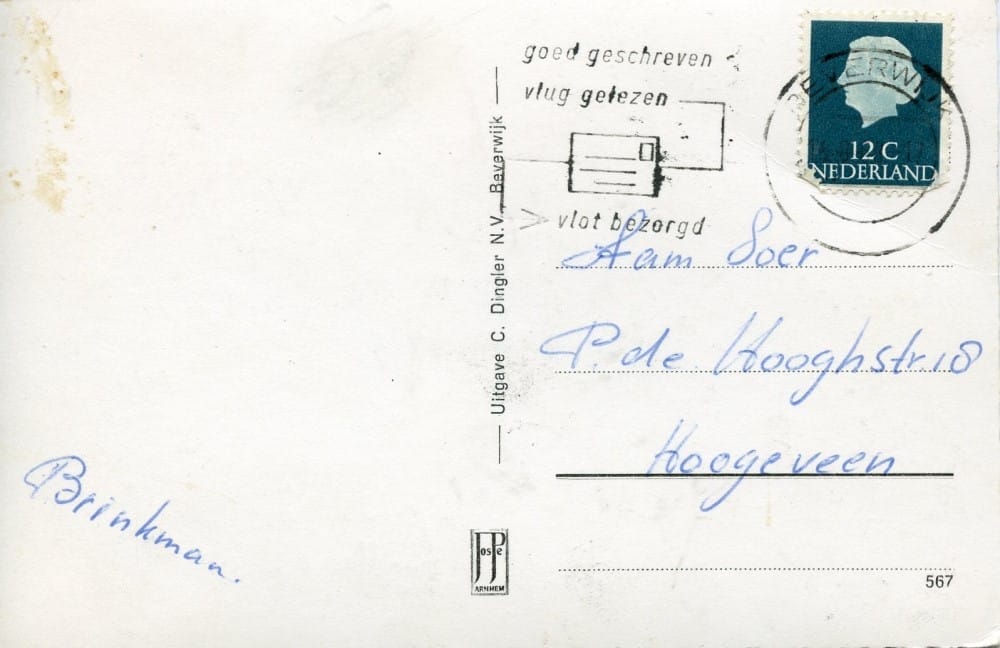 goed geschreven
vlug gelezen
vlot bezorgd
BEVERWIJK
12 C
NEDERLAND
Uitgave C. Dingler N.V., Beverwijk
Aam Soer
P. de Hooghstr. 18
Hoogeveen
Brinkman.
JosPe
ARNHEM
567